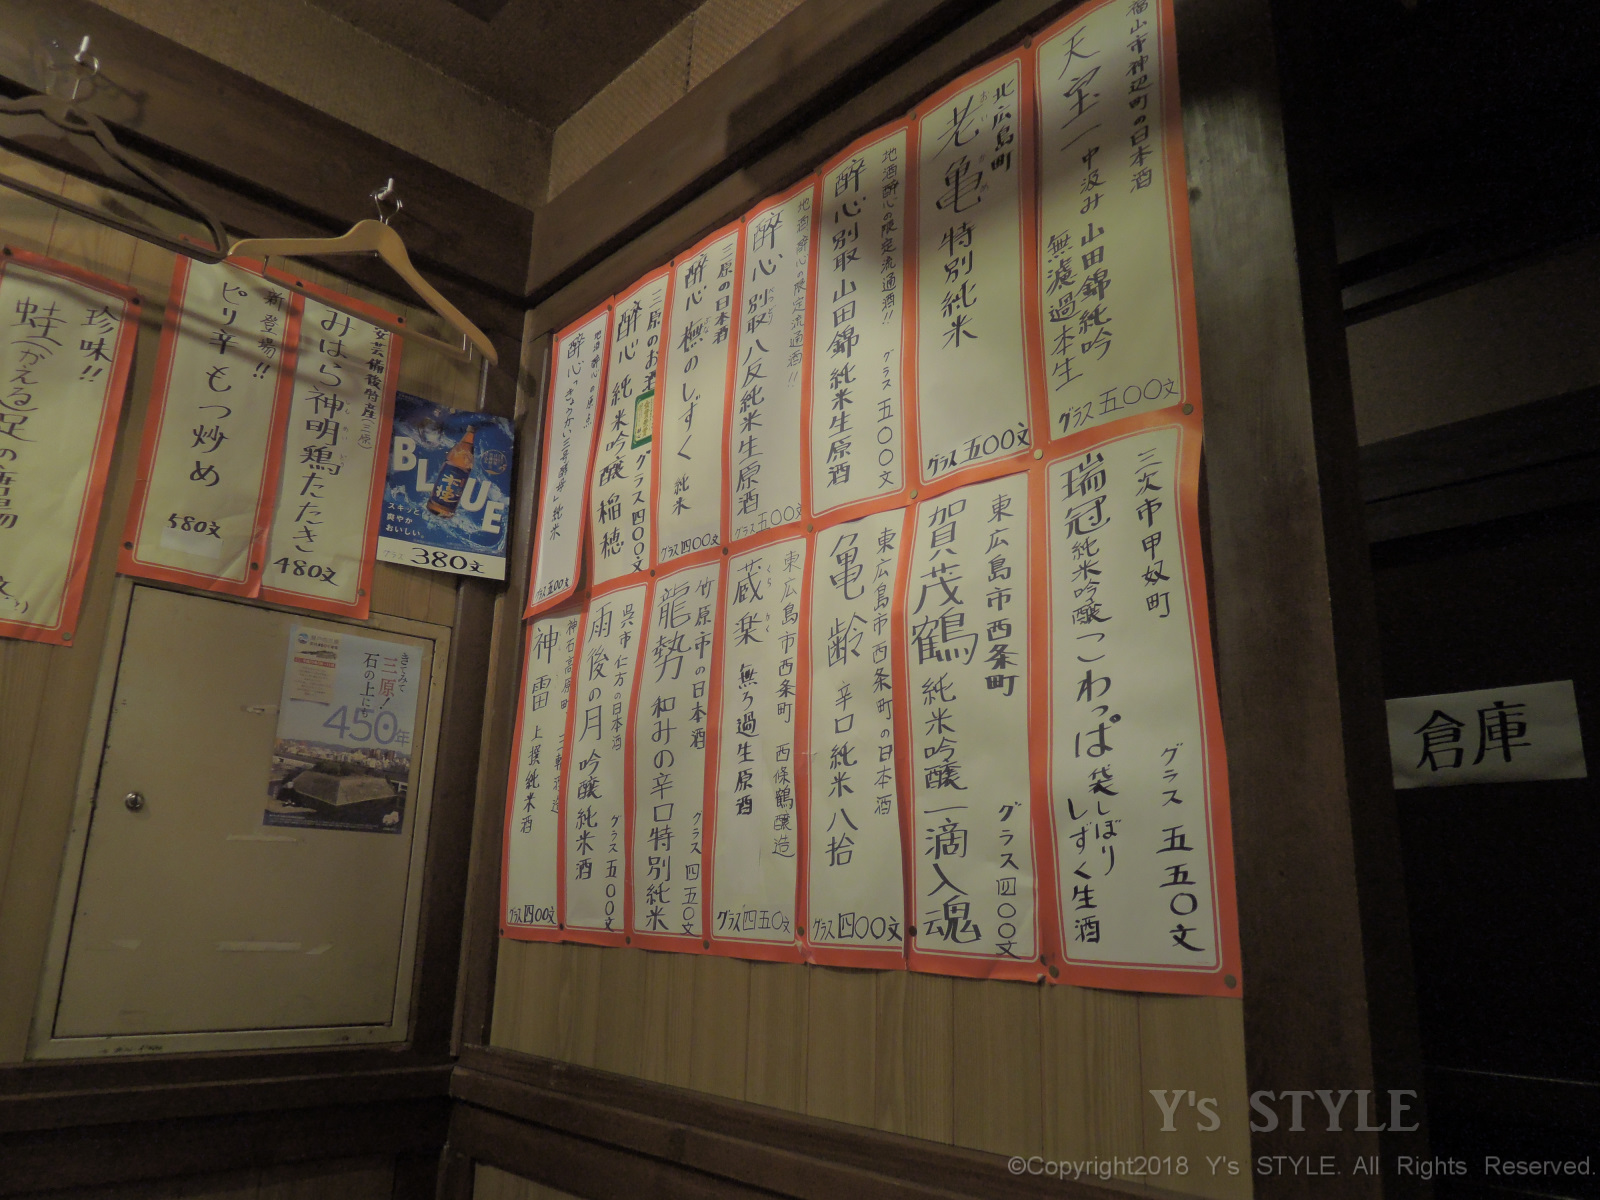 福山市神辺町の日本酒
天宝一 中汲み 山田錦純吟
無濾過本生
グラス五〇〇文
北広島町
老亀 特別純米
おい がめ
グラス五〇〇文
地酒酔心の限定流通酒!!
酔心別取山田錦純米生原酒
グラス五〇〇文
地酒酔心の限定流通酒!!
酔心別取八反純米生原酒
グラス五〇〇文
三原の日本酒
酔心 橅のしずく 純米
グラス四〇〇文
三原のお酒
酔心 純米吟醸 稲穂
グラス四〇〇文
地酒 酔心の原点
グラス五〇〇文
三次市甲奴町
瑞冠 純米吟醸 こわっぱ 袋しぼり
しずく生酒
グラス 五五〇文
東広島市西条町
賀茂鶴 純米吟醸 一滴入魂
グラス四〇〇文
東広島市西条町の日本酒
亀齢 辛口純米八拾
グラス四〇〇文
東広島市西条町 西條鶴醸造
蔵楽 無ろ過生原酒
くら らく
グラス四五〇文
竹原市の日本酒
龍勢 和みの辛口特別純米
グラス四五〇文
呉市仁方の日本酒
雨後の月 吟醸純米酒
グラス五〇〇文
神石高原町 三輪酒造
神雷 上撰純米酒
グラス四〇〇文
安芸備後特産(三原)
みはら神明鶏たたき
480文
新登場!!
ピリ辛もつ炒め
580文
珍味!!
蛙(かえる)足の唐揚
BLUE
スキッと
爽やか
おいしい。
グラス 380文
きてみて
三原!
石の上にも
450年
倉庫
Y's STYLE
©Copyright2018 Y's STYLE. All Rights Reserved.